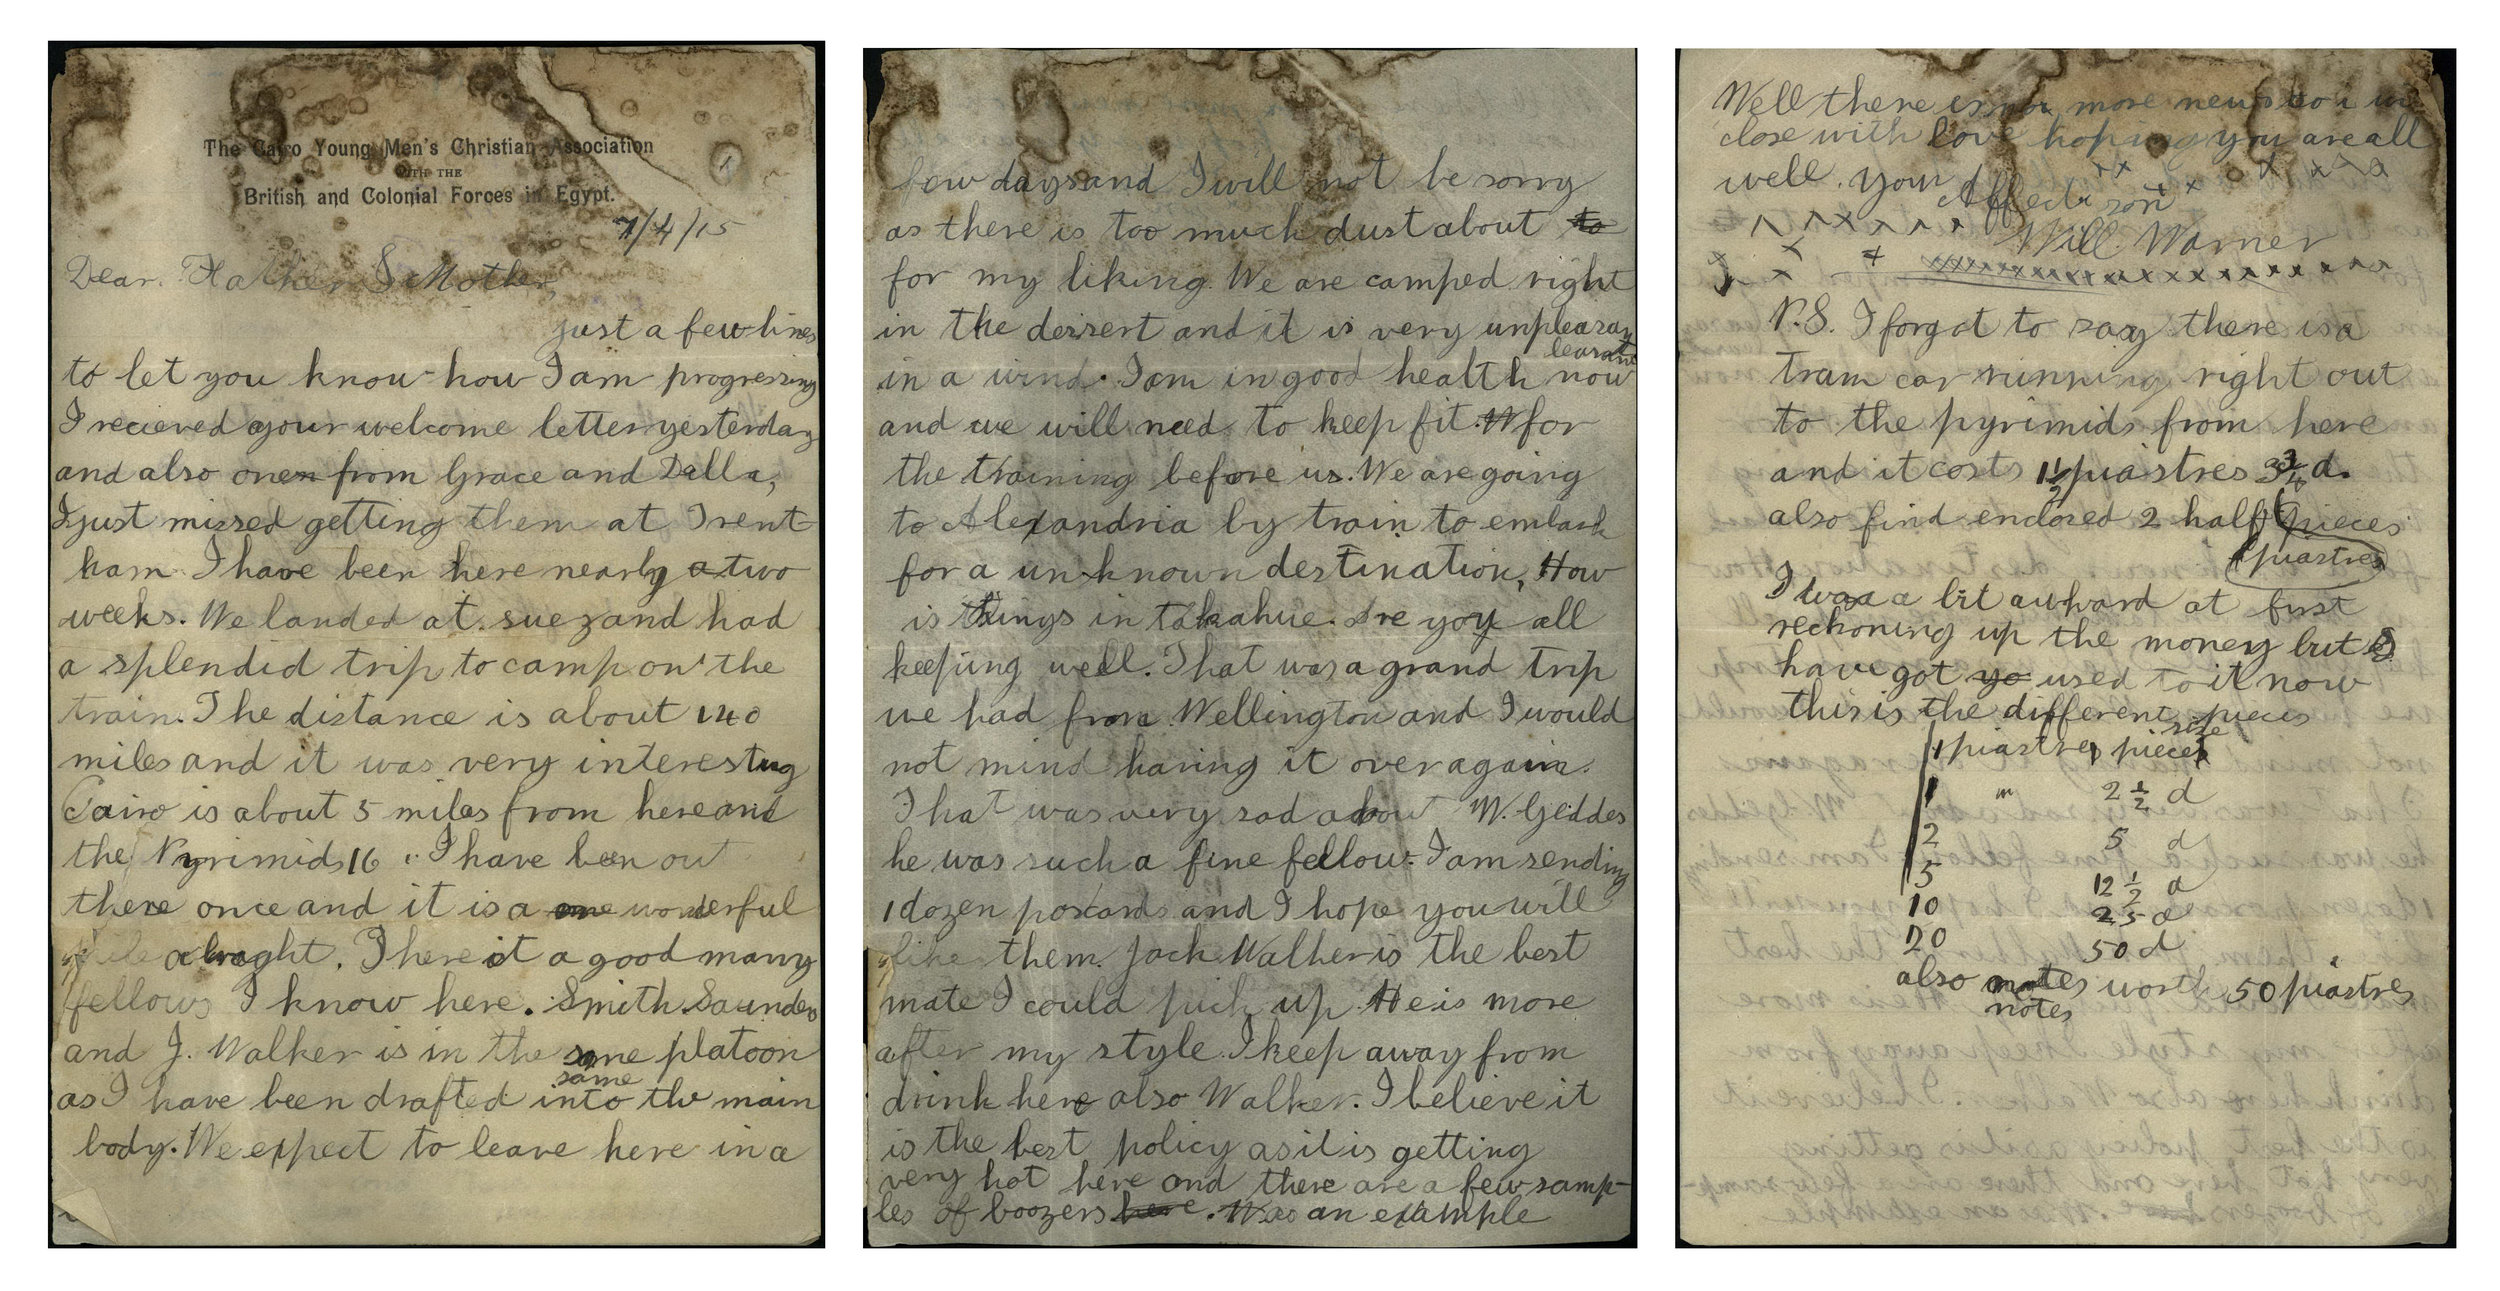 The Cairo Young Men's Christian Association
WITH THE
British and Colonial Forces in Egypt.
1
7/4/15
Dear Father & Mother,
just a few lines
to let you know how I am progressing
I recieved your welcome letter yesterday
and also one from Grace and Dalla,
I just missed getting them at Trent-
ham. I have been here nearly a two
weeks. We landed at suez and had
a splendid trip to camp on the
train. The distance is about 140
miles and it was very interesting
Cairo is about 5 miles from here and
the Pyrimids 16 ". I have been out
there once and it is a one wonderful
alraght. There it a good many
fellows I know here. Smith. Saunders
and J. Walker is in the same platoon
same
as I have been drafted into the main
body. We expect to leave here in a
few days and I will not be sorry
as there is too much dust about to
for my liking. We are camped right
in the dessert and it is very unpleasan
leasant
in a wind. I am in good health now
and we will need to keep fit. W for
the training before us. We are going
to Alexandria by train to embark
for a unknown destination, How
is things in Takahue. Are you all
keeping well. That was a grand trip
we had from Wellington and I would
not mind having it over again.
That was very sad about W. Geddes
he was such a fine fellow. I am sending
1 dozen poscards and I hope you will
like them. Jack Walker is the best
mate I could pick up. He is more
after my style. I keep away from
drink here also Walker. I believe it
is the best policy as it is getting
very hot here and there are a few samp-
les of boozers here. Was an example
Well there is more news so I
close with love hoping you are all
well. your
Affect. son
Will. Warner
x x x x x x x x x x x x x x x x x x x x
P.S. I forgot to say there is a
tram car running right out
to the pyrimids from here
and it costs 1½ piastres 3¾ d.
also find enclosed 2 half pieces
piastres
I was a bit awkard at first
reckoning up the money but I
have got yo used to it now
this is the different pieces
size
1 piastres pieces
1 " 2 ½ d
2 5 d
5 12 ½ d
10 25 d
20 50 d
also notes worth 50 piastres
notes